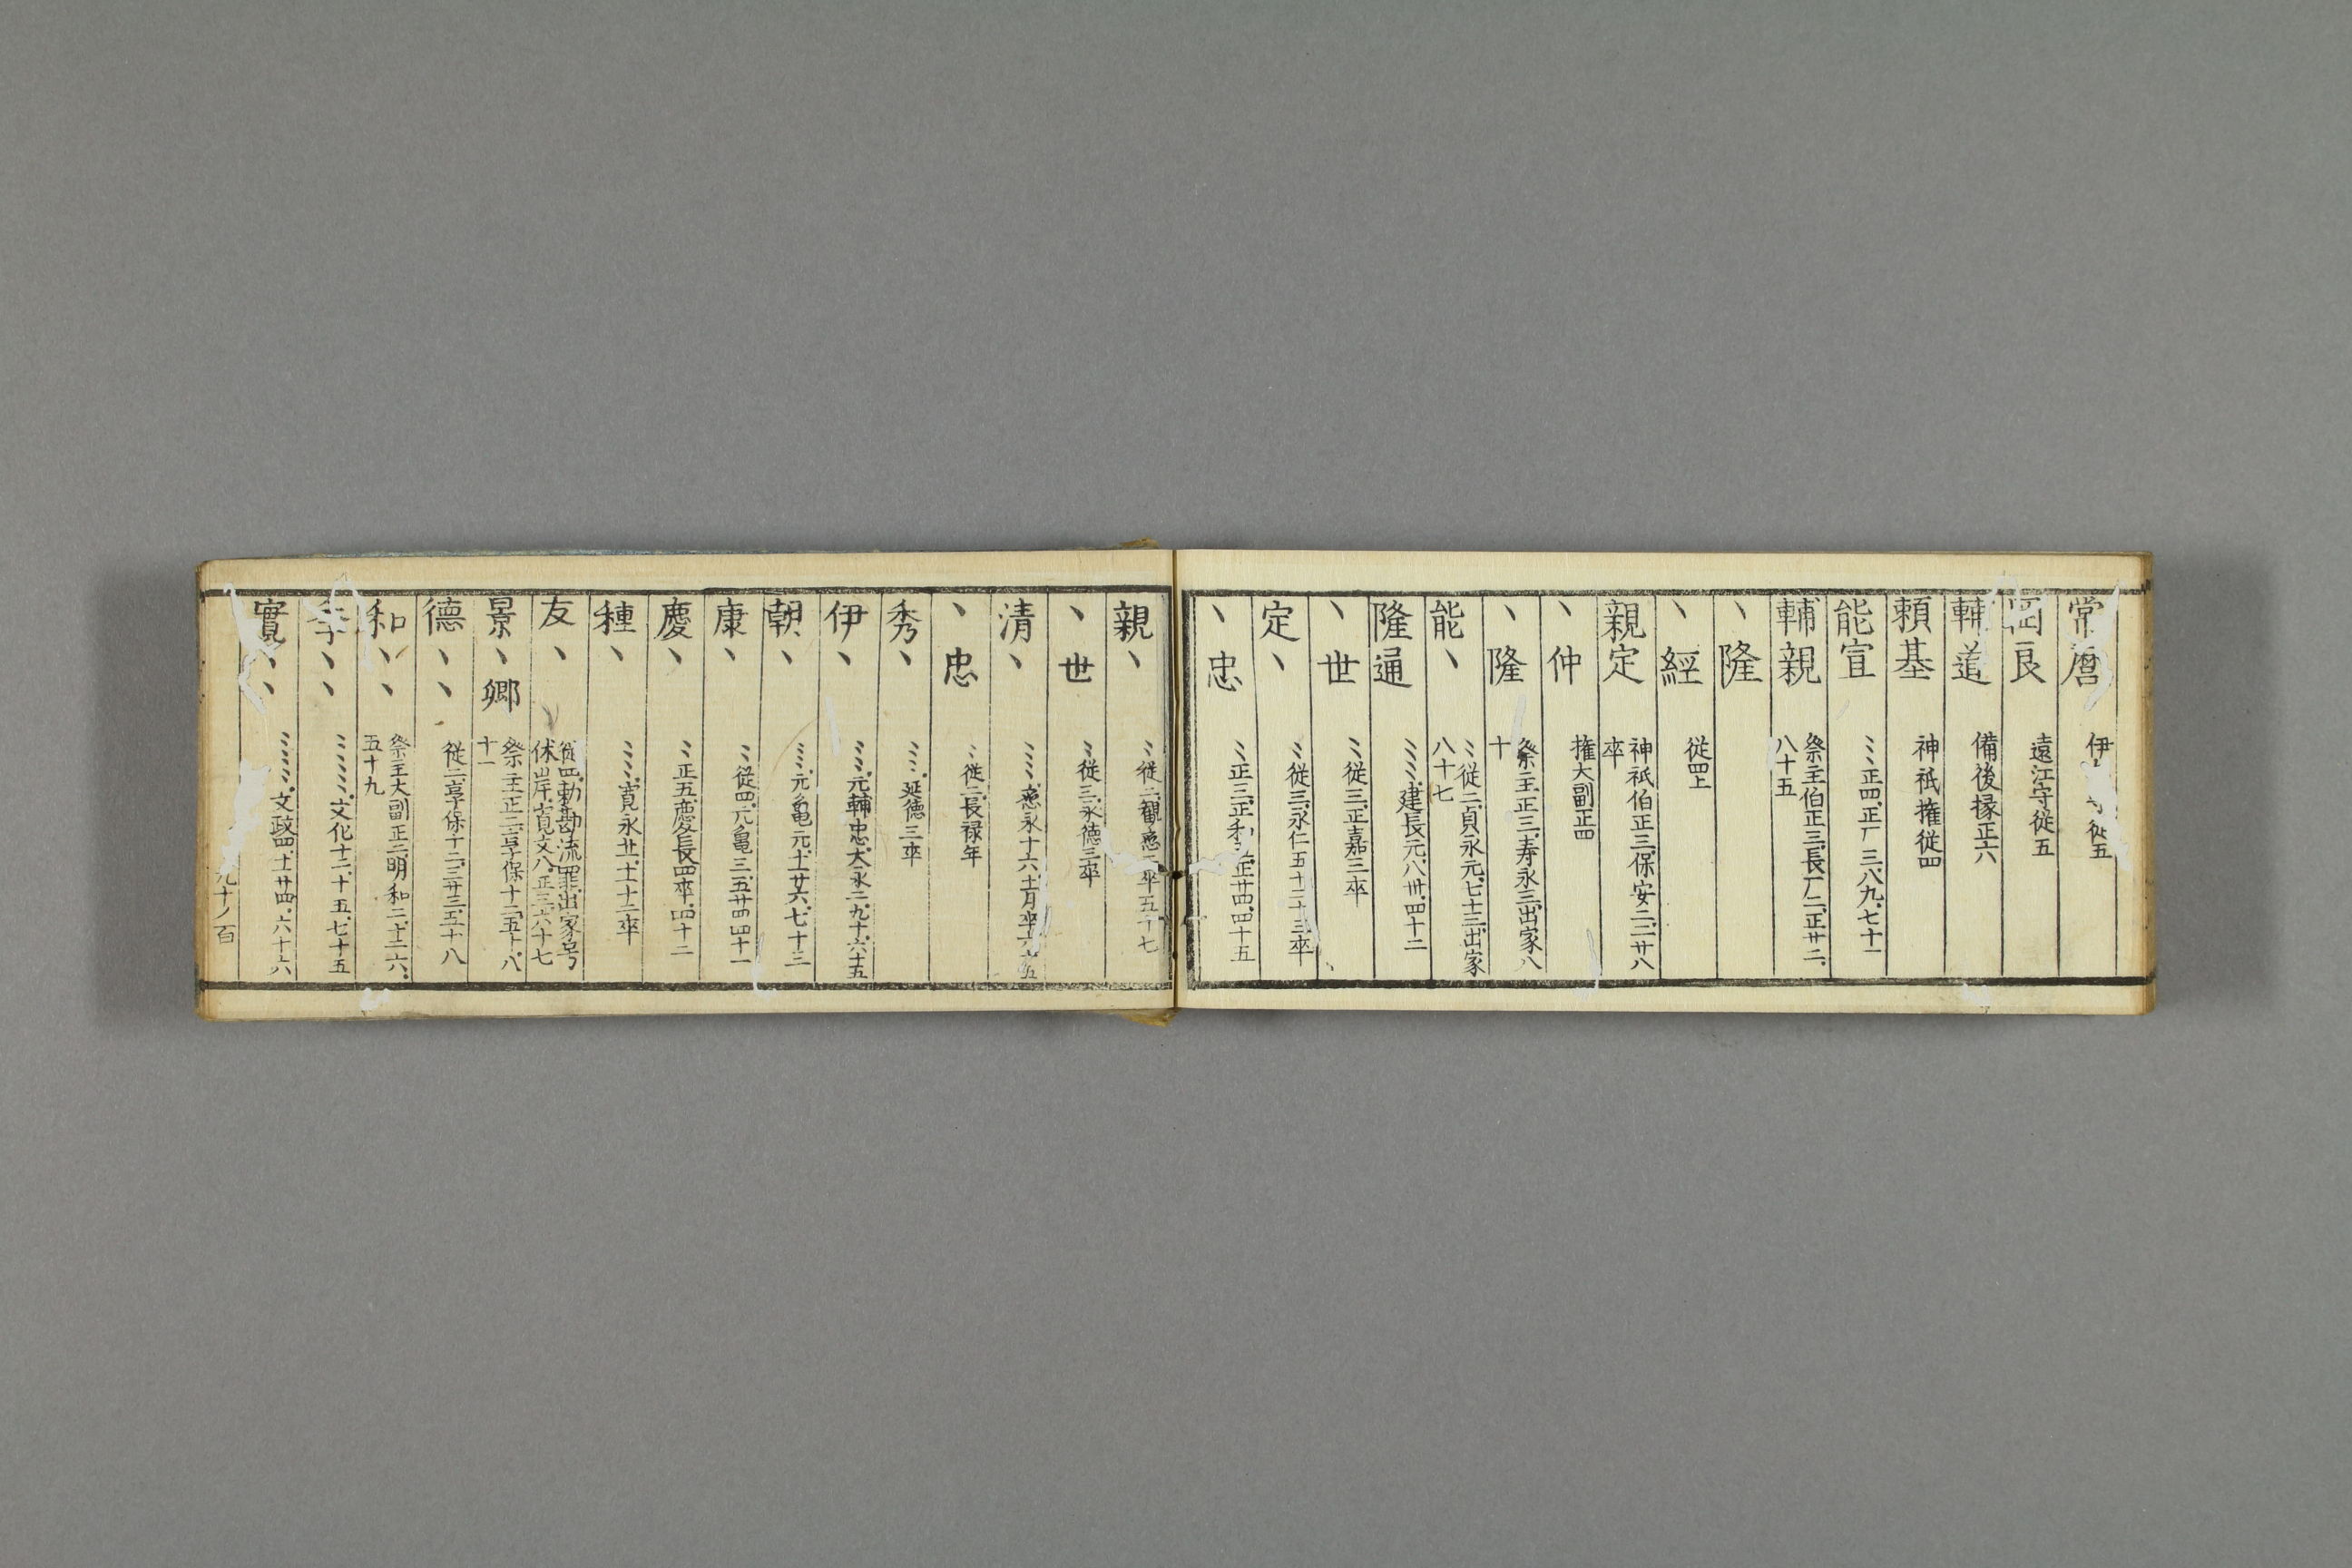 常麿 伊 従五
岡良 遠江守従五
輔道 備後掾正六
頼基 神祇権従四
能宣 ミミ正四、正厂三、八九、七十一
輔親 祭主伯正三、長厂二、正廿二、
八十五
丶隆
丶經 従四上
親定 神祇伯正三、保安二、二廿八
卒
丶仲 権大副正四
丶隆 祭主、正三、寿永三、出家、八
十
能丶 ミ従二、貞永元、七十三、出家
八十七
隆通 ミミミ、建長元、八卅、四十二
丶世 ミ従三、正嘉三卒
定丶 ミ従三、永仁五十二十三卒
丶忠 ミ正三、正和 正廿四、四十五
親丶 ミ従二、観應 卒五十七
丶世 ミ従三、永徳三卒
清丶 ミミミ、應永十六、十一月卒六十五
丶忠 ミ従二、長禄年
秀丶 ミミ、延徳三卒
伊丶 ミミ、元輔忠、大永二、九十、六十五
朝丶 ミミ、元亀元、十一廿六、七十三
康丶 ミ従四、元亀三、五廿四四十一
慶丶 ミ正五、慶長四卒、四十二
種丶 ミミミ、寛永廿一、十一十二卒
友丶 従四、勅勘流罪、出家号
休岸、寛文八、正三、六十七
景丶卿 祭主正二、享保十二、五十、八
十一
德丶丶 従二、享保十二、三廿三、五十八
和丶丶 祭主大副正三、明和二、十二六、
五十九
季丶丶 ミミミミ、文化十二、十五、七十五
實丶丶 ミミミミ、文政四、十一廿四、六十六
九十ノ百